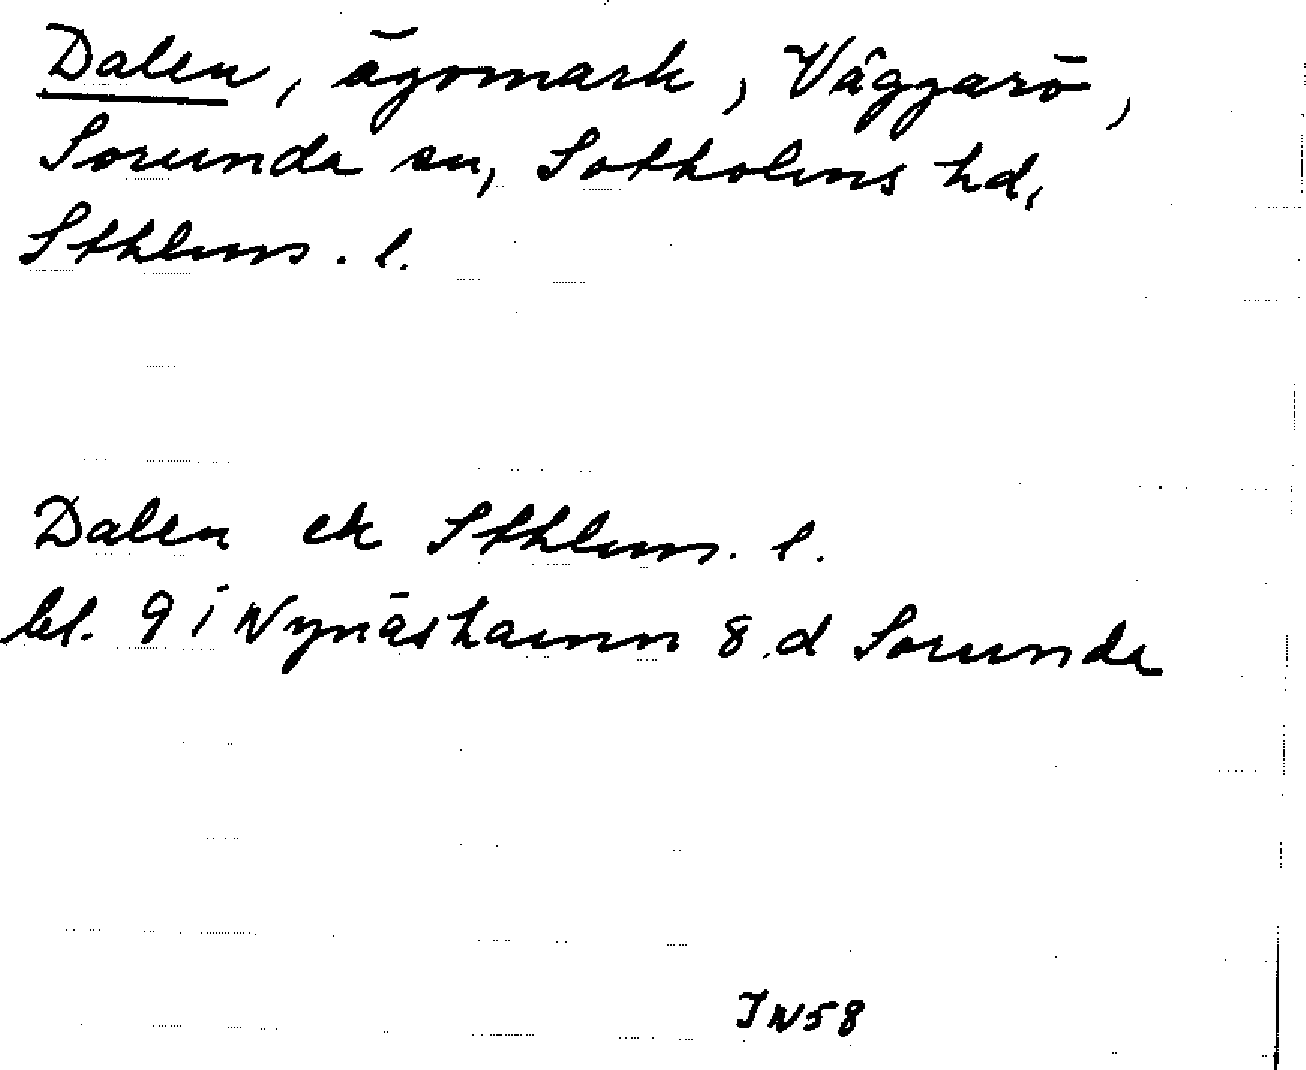 Dalen, ägomark, Väggarö,
Sorunda sn, Sotholms hd,
Sthlms. l.
Dalen ek Sthlms. l.
bl. 9 i Nynäshamn 8 d Sorunda
IN58